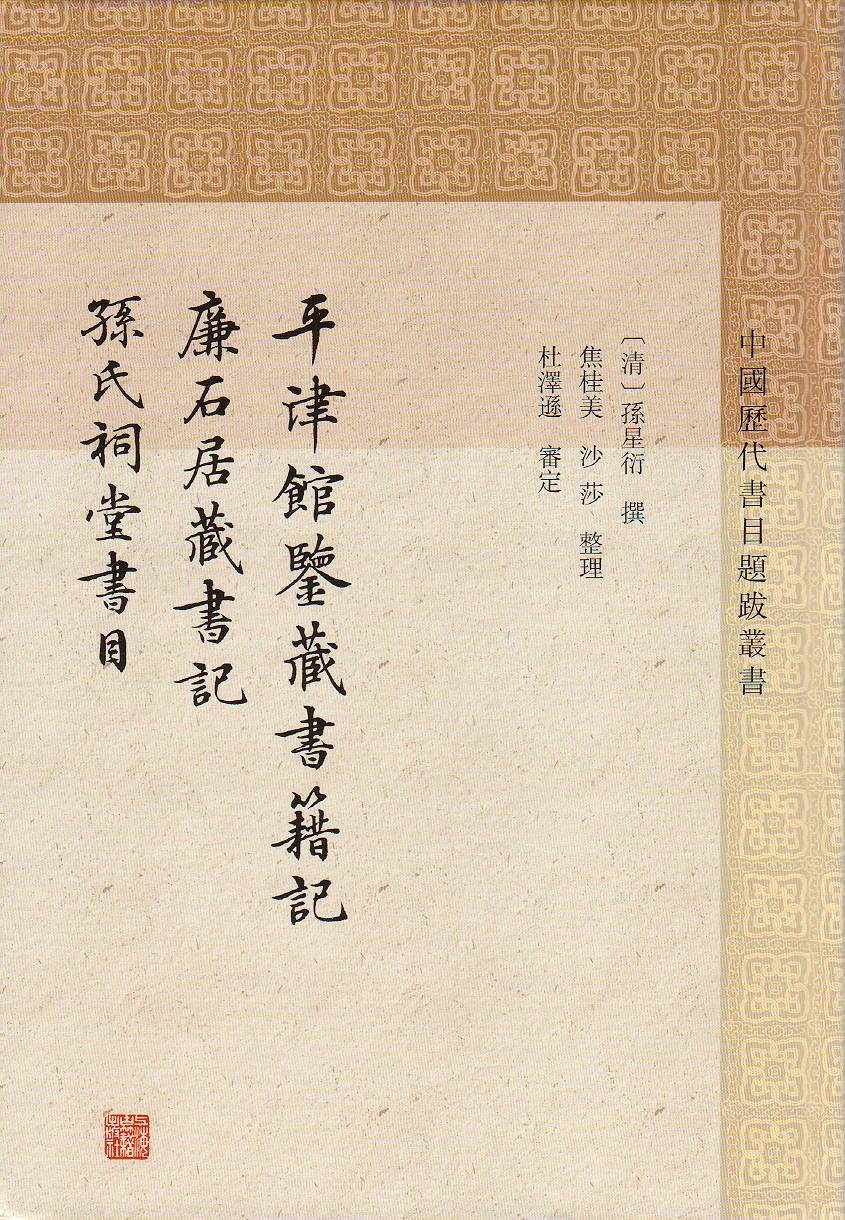 中國歷代書目題跋叢書
〔清〕孫星衍 撰
焦桂美 沙莎 整理
杜澤遜 審定
平津館鑒藏書籍記
廉石居藏書記
孫氏祠堂書目
上海古籍出版社